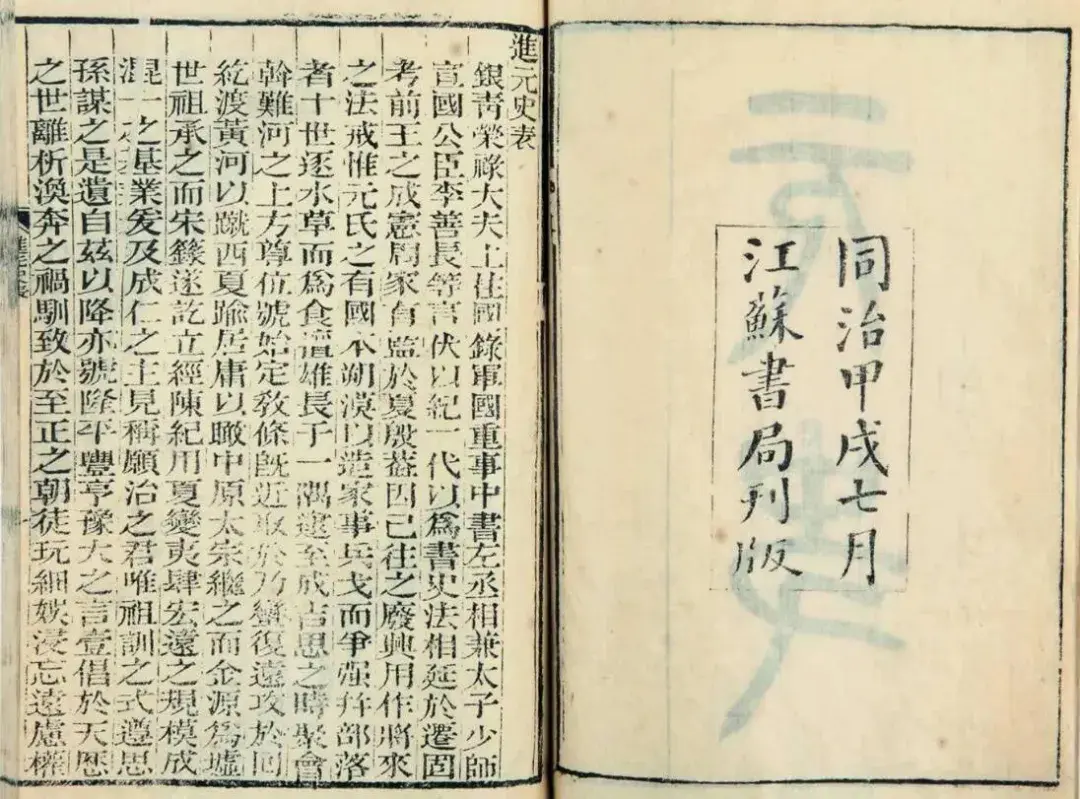 同治甲戌七月
江蘇書局刊版
進元史表
銀青榮祿大夫上柱國錄軍國重事中書左丞相兼太子少師
宣國公臣李善長等言伏以紀一代以爲書史法相延於遷固
考前王之成憲周家有監於夏殷葢因已往之廢興用作將來
之法戒惟元氏之有國本朔漠以造家事兵戈而爭强幷部落
者十世逐水草而爲食雄長于一隅逮至成吉思之時聚會
斡難河之上方尊位號始定敎條旣近取於乃蠻復遠攻於回
紇渡黃河以蹴西夏踰居庸以瞰中原太宗繼之而金源爲墟
世祖承之而宋籙遂訖立經陳紀用夏變夷肆宏遠之規模成
混一之基業爰及成仁之主見稱願治之君唯祖訓之式遵思
孫謀之是遺自兹以降亦號隆平豐亨豫大之言壹倡於天歷
之世離析渙奔之禍馴致於至正之朝徒玩細娛浸忘遠慮權